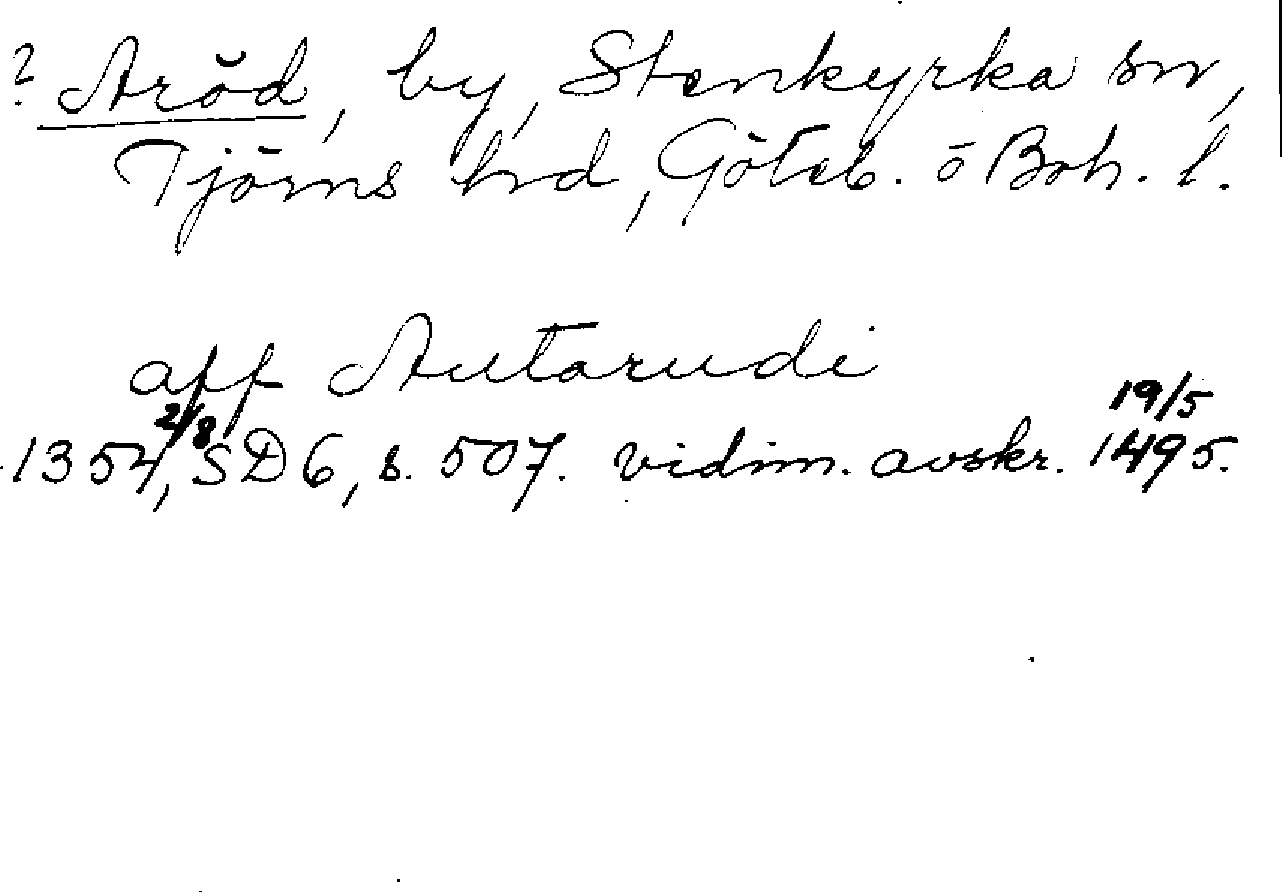 ? Aröd, by, Stenkyrka sn,
Tjörns hd, Göteb. o Boh. l.
aff Autarudi
1354 2/8, SD 6, s. 507. vidim. avskr. 19/5 1495.